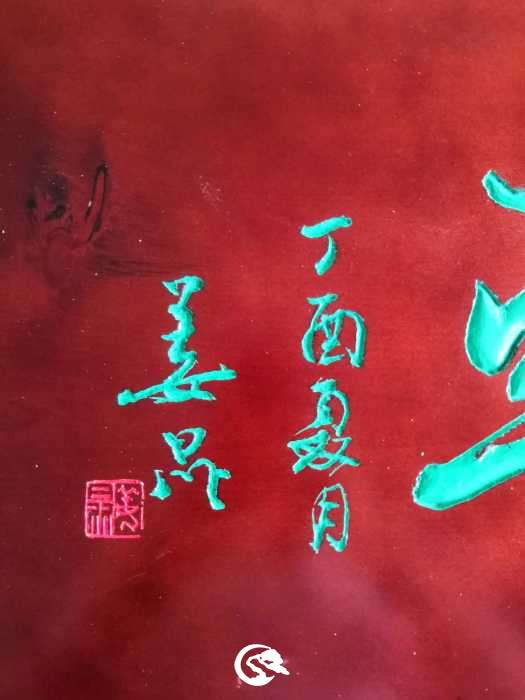 丁酉夏月
姜昆